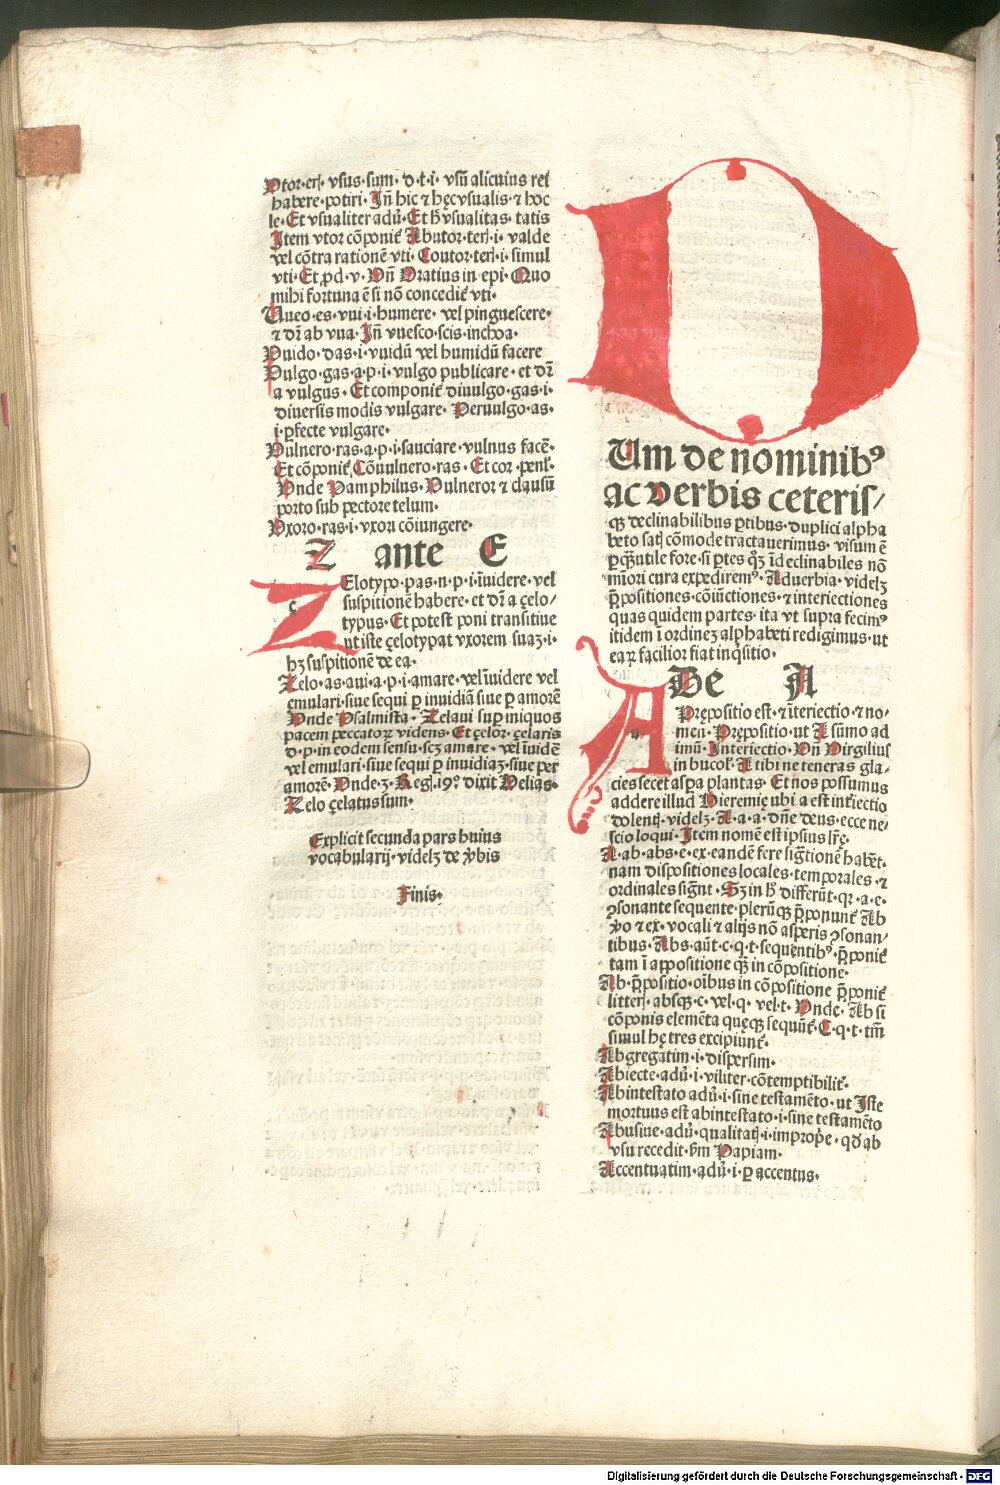 Vtor·erꝭ vsus·sum· d·t·i· vsū alicuius rei
habere·potiri· Jn̄ hic ⁊ hęc vsualis ⁊ hoc
le·Et vsualiter adū·Et h̄ vsualitas· tatis
Jtem vtor cōponit᷑ Abutor·terꝭ·i· valde
vel cōtra rationē vti· Coutor·terꝭ·i·simul
vti·Et ꝓd·v·Vn̄ Oratius in epi·Quo
mihi fortuna ē si nō concedit᷑ vti·
Uueo·es·vui·i·humere· vel pinguescere·
⁊ dr̄ ab vua·Jn̄ vuesco·scis·inchoa·
Vuido·das·i·vuidū vel humidū facere
Vulgo·gas·a·p·i·vulgo publicare· et dr̄
a vulgus· Et componit᷑ diuulgo·gas·i·
diuersis modis vulgare· Peruulgo·as·
i·ꝑfecte vulgare·
Vulnero·ras·a·p·i·sauciare·vulnus facē·
Et cōponit᷑ Cōuulnero·ras·Et cor·penl᷑·
Vnde Pamphilus·Vulneror ⁊ clausū
porto sub pectore telum·
Vxoro·ras·i·vxori cōiungere·
Z ante E
Zelotypo·pas·n·p·i·īuidere·vel
suspitionē habere·et dr̄ a çelo/
typus·Et potest poni transitiue
ut iste çelotypat vxorem suaꝫ·i·
hꝫ suspitionē de ea·
Zelo·as·aui·a·p·i·amare·vel īuidere vel
emulari·siue sequi ꝑ inuidiā siue ꝑ amorē
Vnde Psalmista·Zelaui suꝑ iniquos
pacem peccatoꝝ videns·Et çelor·çelaris
d·p·in eodem sensu·scꝫ amare·vel īuidē
vel emulari·siue sequi ꝑ inuidiaꝫ·siue per
amorē·Vnde·3·Reg·19·dixit Helias·
Zelo çelatus sum·
Explicit secunda pars huius
vocabularij·videlꝫ de v̄bis
Finis·
DUm de nominibꝰ
ac verbis ceteris/
qꝫ declinabilibus ꝑtibus·duplici alpha
beto satꝭ cōmode tractauerimus· visum ē
ꝑqꝫ utile fore·si ꝑtes qꝫ īdeclinabiles nō
mīori cura expediremꝰ·Aduerbia·videlꝫ
p̄positiones·cōiūctiones·⁊ interiectiones
quas quidem partes·ita vt supra fecimꝰ
itidem ī ordineꝫ alphabeti redigimus·ut
eaꝝ facilior fiat inq̄sitio·
De A
A Prępositio est·⁊ īteriectio·⁊ no-
men·Prępositio·ut A sūmo ad
imū·Jnteriectio·Vn̄ Virgilius
in bucol᷑·A tibi ne teneras gla/
cies secet aspa plantas·Et nos possumus
addere illud Hieremię ubi a est int̄iectio
dolentꝭ·videlꝫ·A·a·a·dn̄e deus·ecce ne/
scio loqui·Jtem nomē est ipsius lr̄e·
A·ab·abs·e·ex·eandē fere sig̅tionē habēt·
nam dispositiones locales·temporales·⁊
ordinales sign̄t·Sꝫ in h̄ differūt·qꝛ·a·e·
ꝯsonante sequente·plerūqꝫ p̄ponunt᷑ Ab
v̄o ⁊ ex·vocali ⁊ alijs nō asperis ꝯsonan/
tibus·Abs·aūt·c·q·t·sequentibꝰ·p̄ponit᷑
tam ī appositione qꝫ in cōpositione·
Ab·p̄positio·oībus in cōpositione p̄ponit᷑
litterꝭ·absqꝫ·c·vel·q·vel·t·Vnde·Ab si
cōponis elemēta quęqꝫ sequūt᷑·C·q·t·tm̄
simul hę tres excipiunt᷑·
Abgregatim·i·dispersim·
Abiecte·adū·i·viliter·cōtemptibilit᷑·
Abintestato adū·i·sine testamēto·ut Jste
mortuus est abintestato·i·sine testamēto
Abusiue·adū·qualitatꝭ·i·improp̄e·qd̄ ab
vsu recedit·ẜm Papiam·
Accentuatim·adū·i·ꝑ accentus·
Digitalisierung gefördert durch die Deutsche Forschungsgemeinschaft - DFG